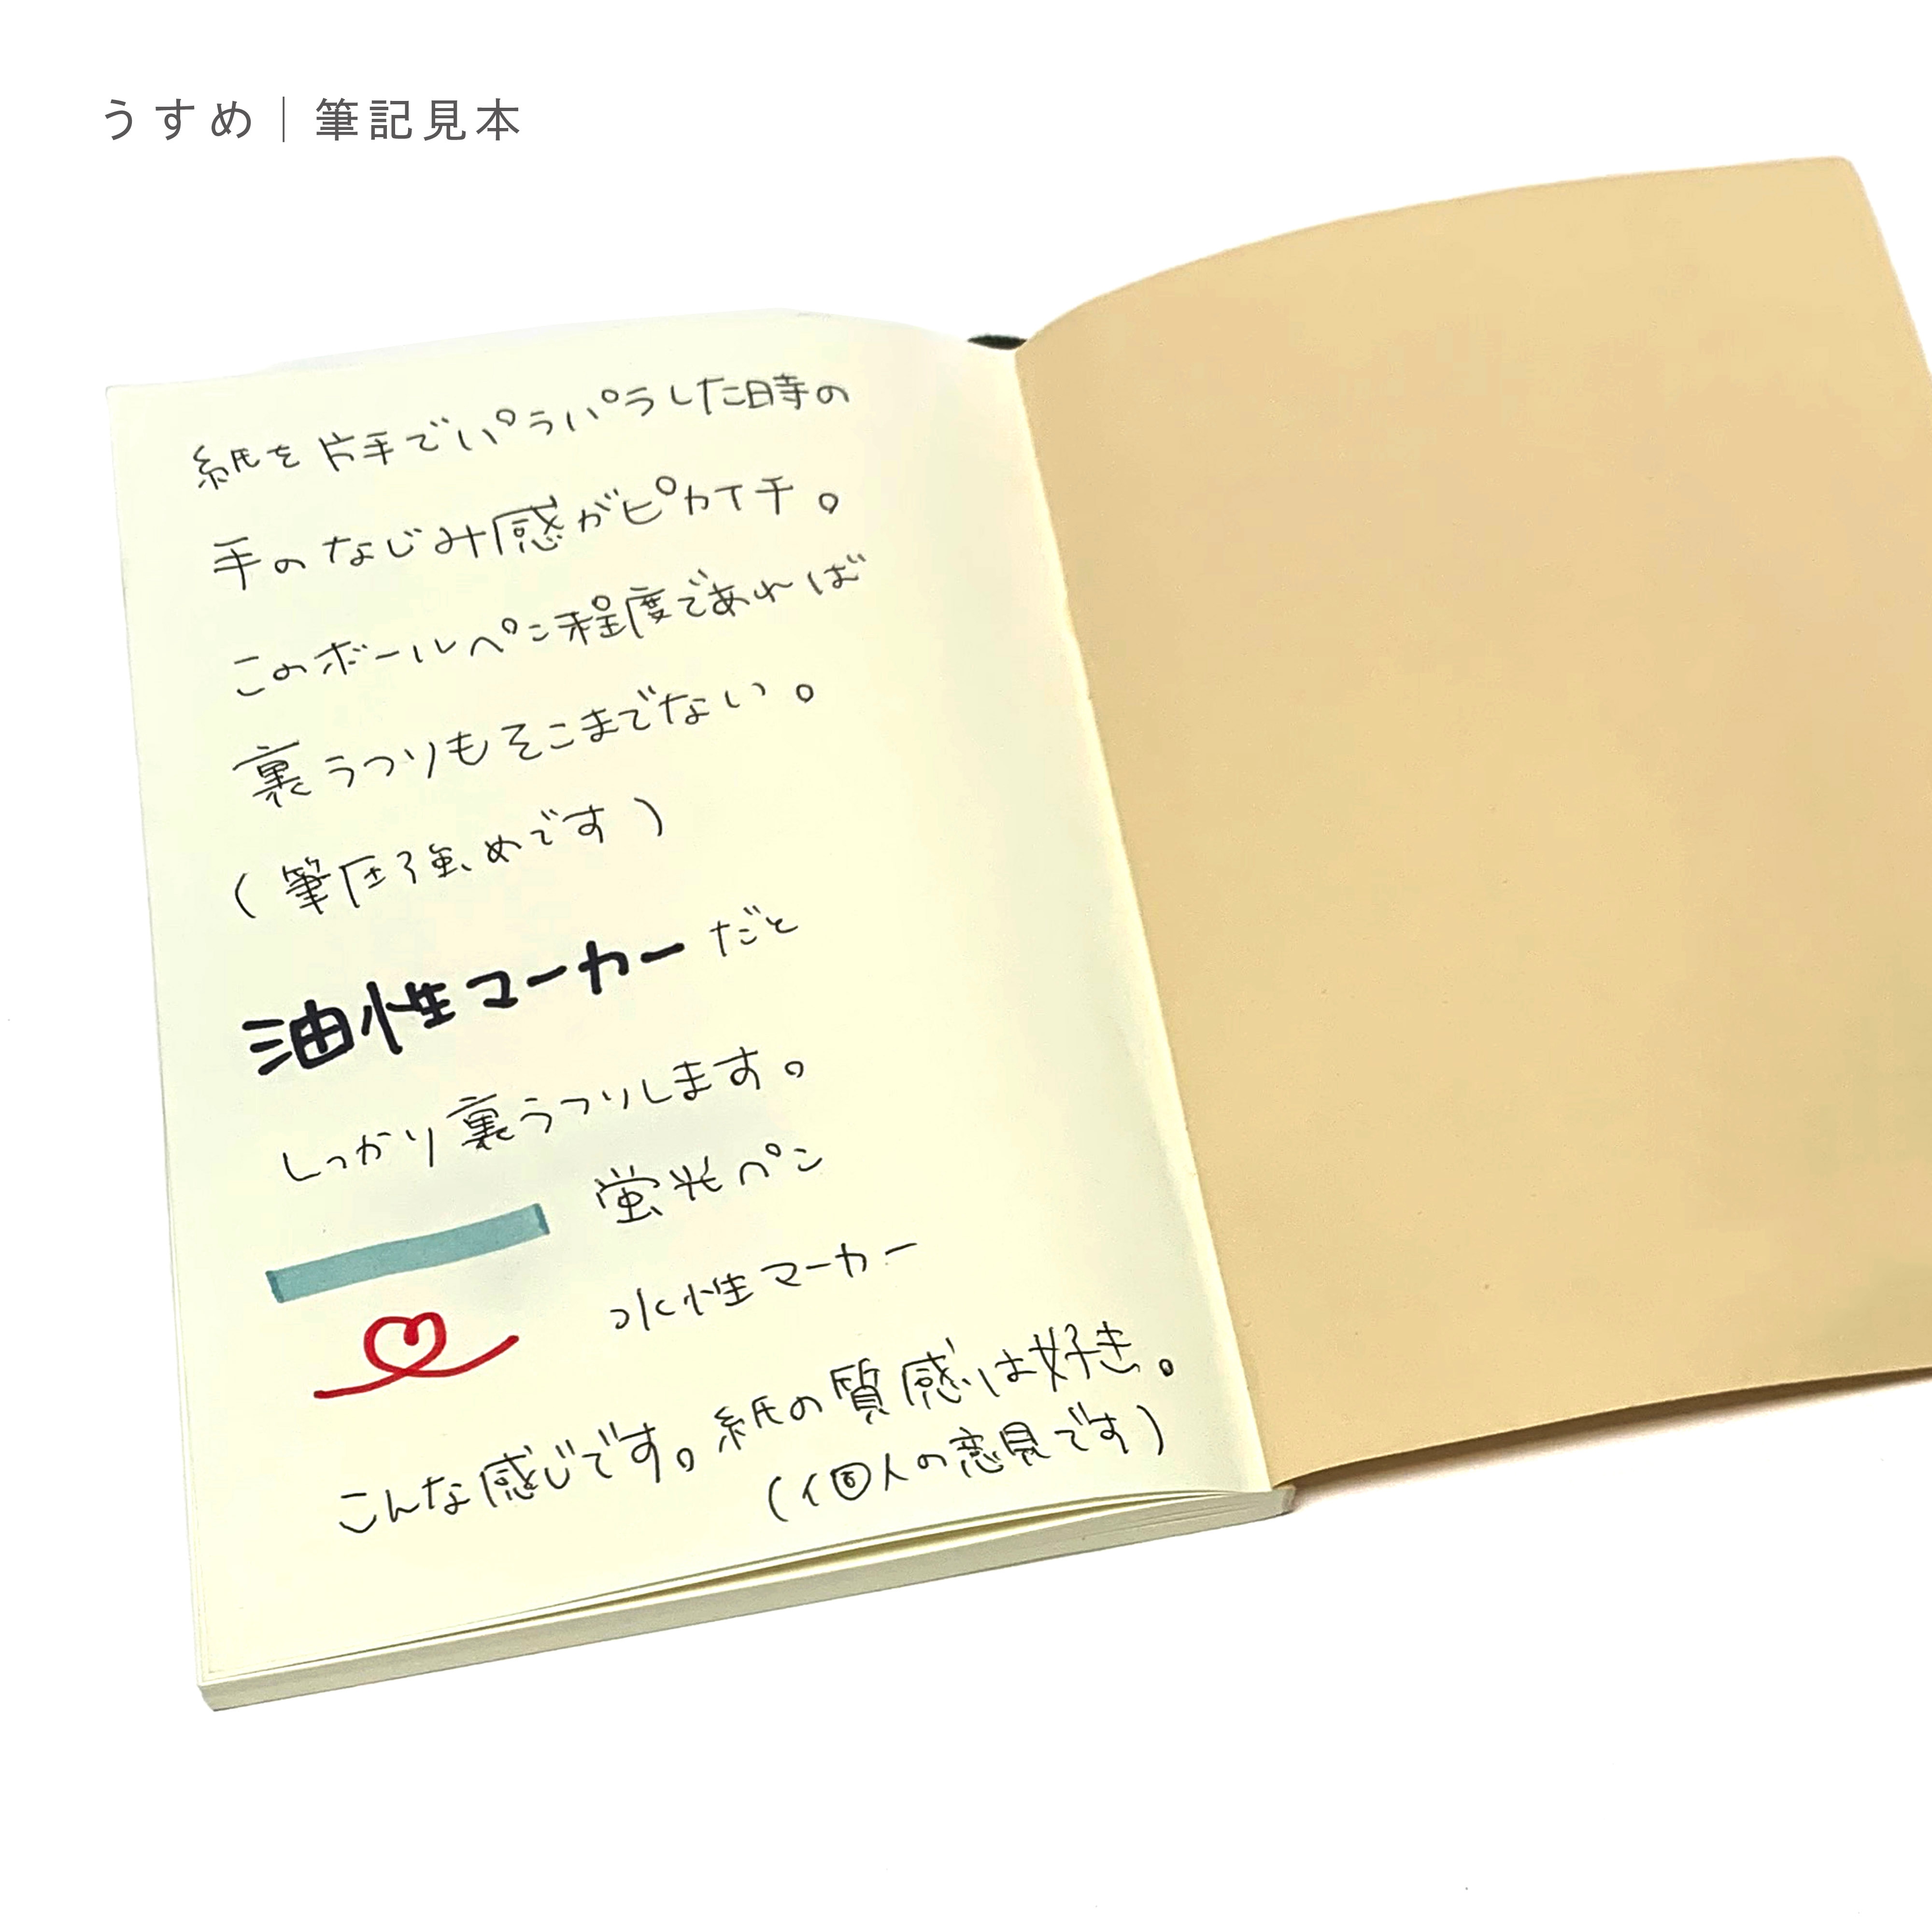 うすめ｜筆記見本
紙を片手でパラパラした時の
手のなじみ感がピカイチ。
このボールペン程度であれば
裏うつりもそこまでない。
(筆圧強めです)
油性マーカーだと
しっかり裏うつりします。
蛍光ペン
水性マーカー
こんな感じです。紙の質感は好き。
(個人の意見です)